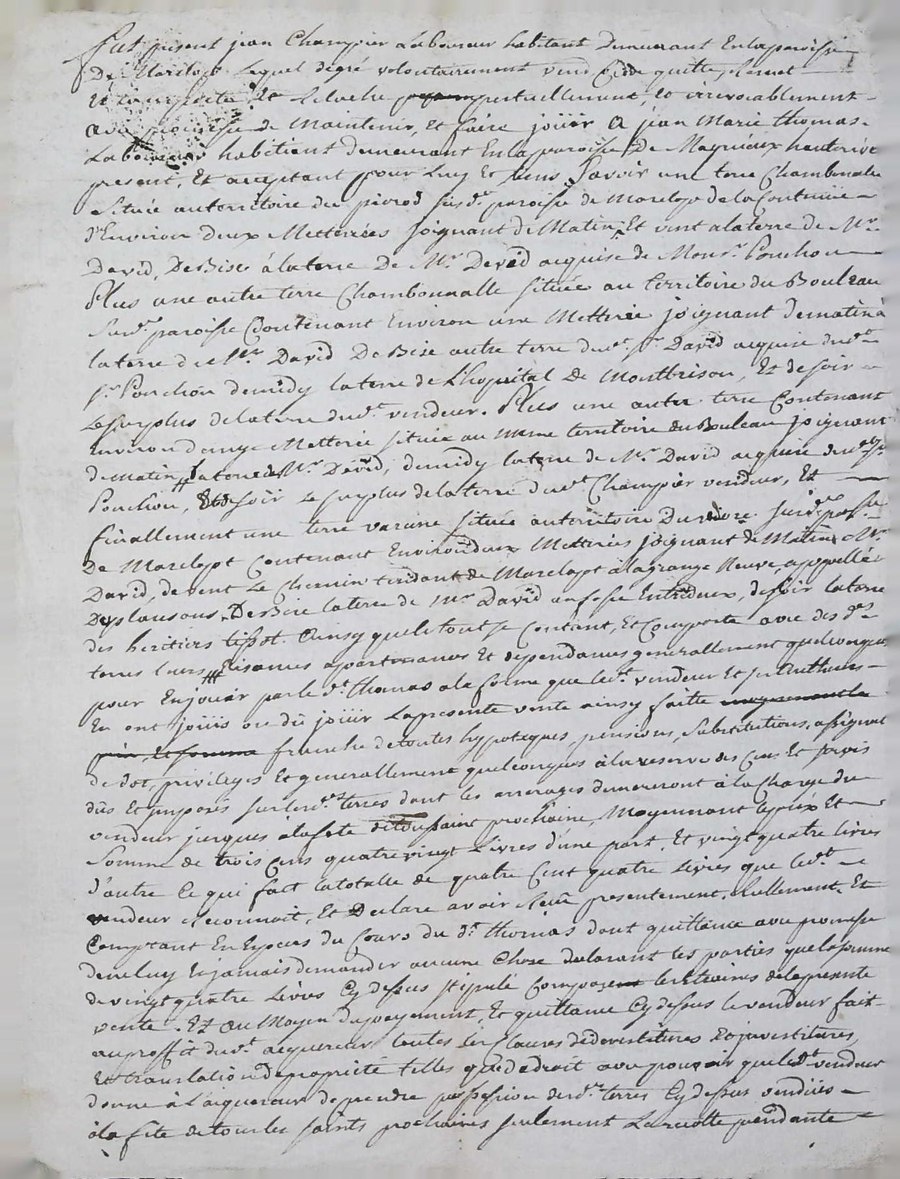 Fut présent jean Champier Laboureur habitant Demeurant En la paroisse
De Marelopt Lequel degré volontairement vend Cede quitte, Remet
Et transporte Et Relache perpetuellement, et irrevocablement
avec promesse de Maintenir, et faire jouïr a jean Marie thomas
Laboureur habitant demeurant En la paroisse De Magnieux hauterive
present, Et acceptant pour Luy Et siens Savoir une terre Chambonnalle
Située au territoire du susd.e paroisse de Marelopt de la Contenüe
d'Environ deux Metterées joignant de Matin Et vent a la terre de Mr.
David, De Bise à la terre De Mr. David acquise de Monsr. Ponchon
Plus une autre terre Chambonnalle située au territoire du Bouleau
Susd.e paroisse Contenant Environ une Metterée joignant de matin à
la terre de Mr. David De Bise autre terre dud.t Sr. David acquise dud.t
Sr. Ponchon de midy la terre de L'hopital De Montbrison, Et de soir
Le surplus de la terre dud.t vendeur. Plus une autre terre Contenant
Environ Metterée située au même territoire du Bouleau joignant
de matin la terre de Mr. David, de midy la terre de Mr. David acquise dud.t Sr.
Ponchon, Et de soir Le surplus de la terre dud.t Champier vendeur, Et
finallement une terre varaine située au territoire Du susd.e paroisse
De Marelopt Contenant Environ deux Metterées joignant de Matin à Mr.
David, de vent Le Chemin tendant de Marelopt à la grange Neuve, appellée
Desplausons, De Bise la terre de Mr. David un fossé Entredeux, de soir la terre
des heritiers tissot. Ainsy que le tout se Contient, Et Comporte avec des d.es
terres leurs aisances apartenances Et dependances generallement quelconques
pour En jouir par led.t thomas a la forme que led.t vendeur Et ses Autheurs
En ont joüis ou dû joüir La presente vente ainsy faitte moyennant le
prix, et somme franche de toutes hypoteques, pensions, Substitutions, assignat
de dot, privileges Et generallement quelconques à la reserve des Cens Et servis
dûs Et imposés sur lesd.es terres dont les arrerages demeureront à la Charge du
vendeur jusques à la fete de toussaint prochaine, Moyennant le prix Et
Somme de trois Cens quatre vingt Livres d'une part, Et vingt quatre livres
d'autre Ce qui fait la totalle de quatre Cent quatre Livres que led.t
vendeur Reconnoit, Et Declare avoir Reçû presentement, Reellement, Et
Comptant En Especes du Cours dud.t thomas dont quittance avec promesse
de ne luy En jamais demander aucune Chose declarant les parties que la somme
de vingt quatre Livres Cy dessus stipulé Compose les etreines de la presente
vente. Et au Moyen du payement, Et quittance Cy dessus le vendeur fait
au proffit dud.t acquereur toutes les Clauses de devestitures Et investitures,
Et translation de propriété telles que de droit avec pouvoir que led.t vendeur
donne à L'aquereur de prendre possession desd.es terres Cy dessus vendües
à la fete de tous les saints prochaines seulement La recolte pendante